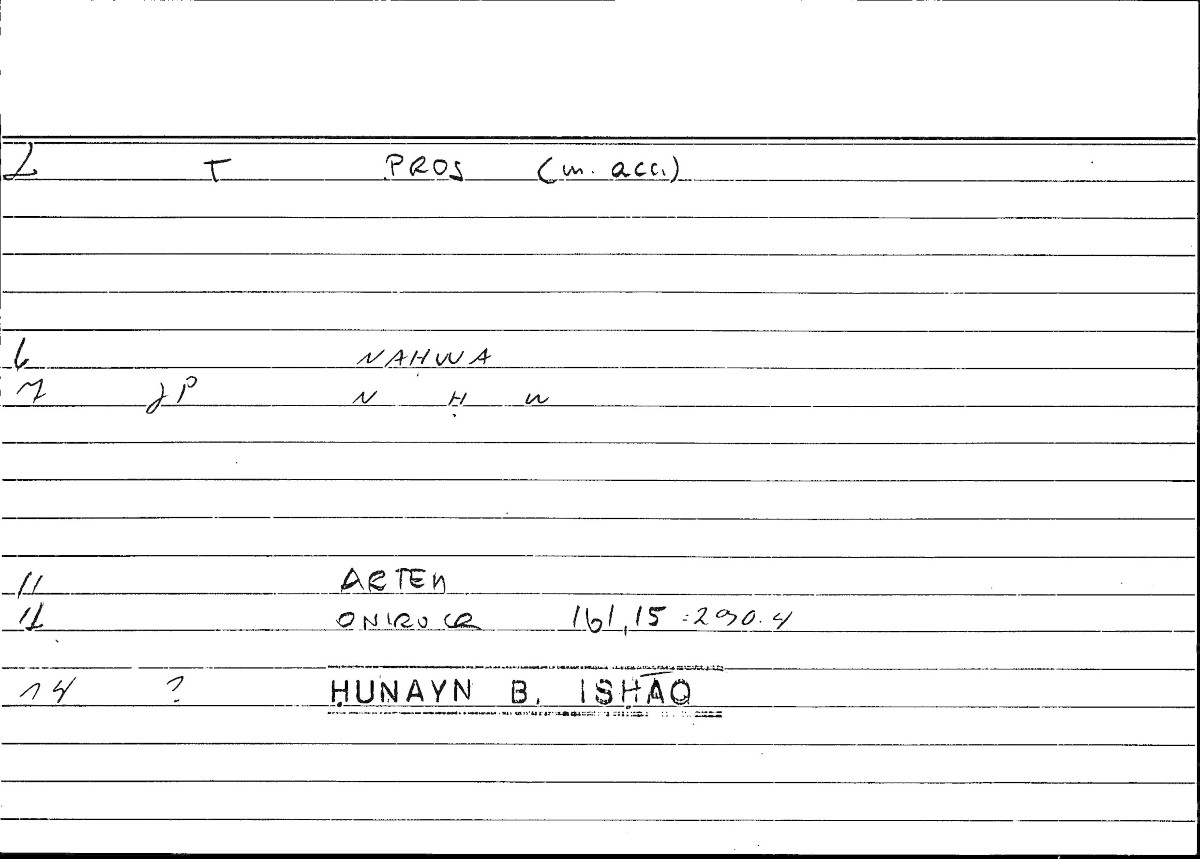 2 T PROS (m. acc.)
6 NAHWA
7 JP N Ḥ W
11 ARTEM
12 ONIROCR 161,15 : 290.4
14 ? ḤUNAYN B. ISḤĀQ